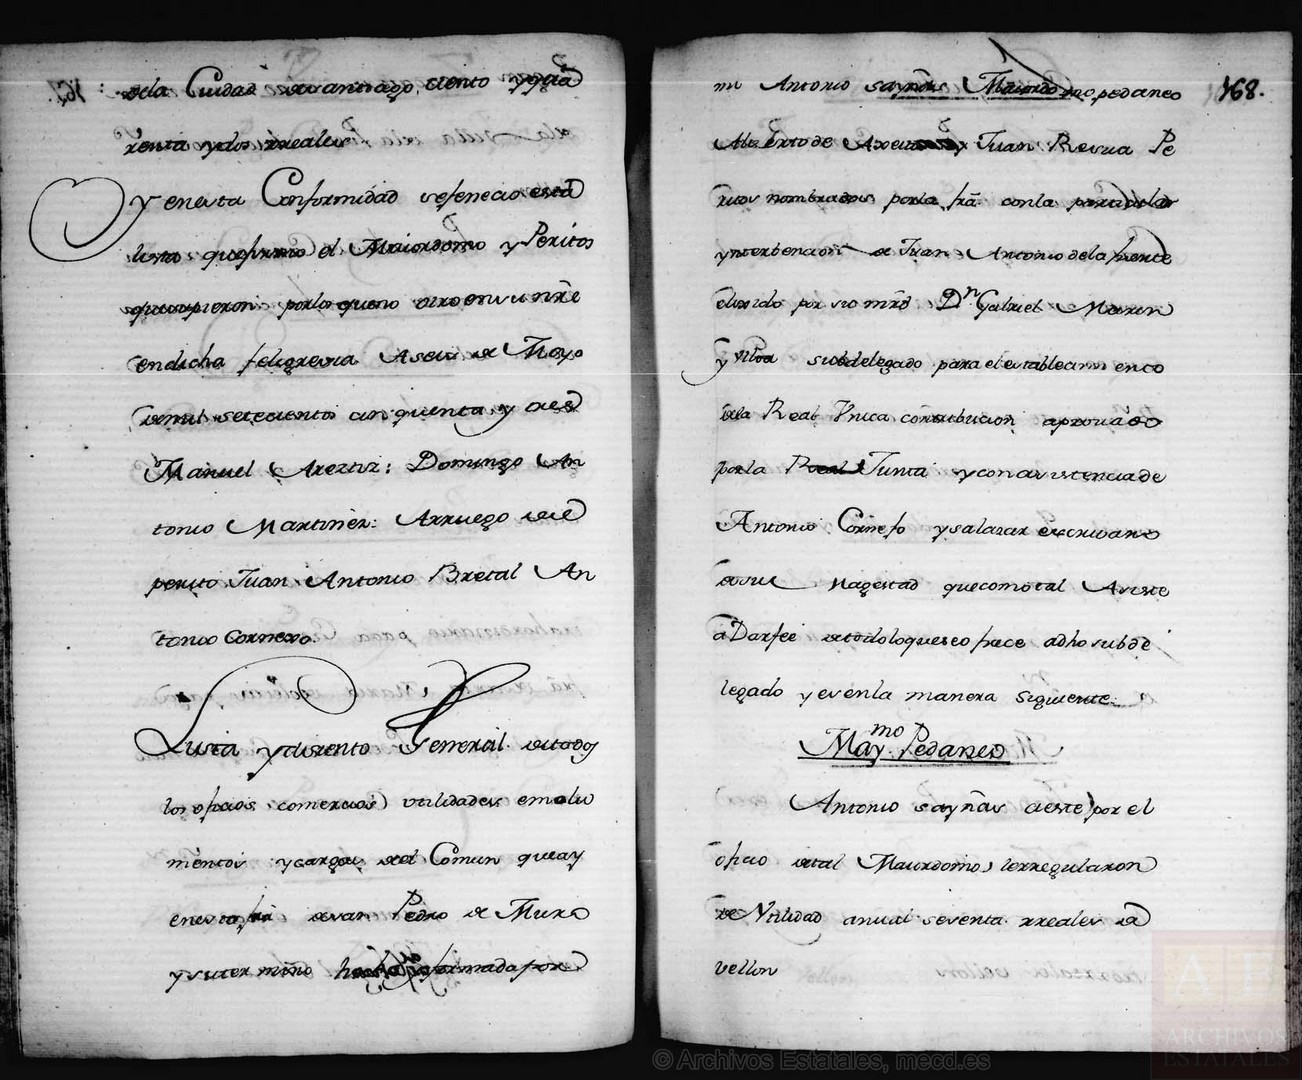 dela Ciudad de santiago, ciento yqua
renta ydos rreales
Y enesta Conformidad sefenecio esta
lista quefirmo el Maiordomo y Peritos
quesupieron, porlo queno otro ensu nre
endicha feligresia Aseis de Mayo
demil setecientos cinquenta, y tres
Manuel Areztiz: Domingo An
tonio Martinez: Arruego de el
perito Juan Antonio Bretal An
tonio Cornexo.
Lista yasiento General detodos
los oficios, comercios, utilidades emolu
mentos ycargas del Comun queay
enesta fra desan Pedro de Muro
ysutermino formada por
mi Antonio sayñas Maiordomo pedaneo
Juan Resua Pe
ritos nombrados porla fra conla
ynterbencion de Juan Antonio dela fuente
elexido por sio mrd Dn Gabriel Maren
y Ulloa subdelegado para el establecimi ento
dela Real Vnica contribucion aprouado
porla Real Junta yconasistenciade
Antonio Cornejo ysalazar escriuano
desu Magestad quecomotal Asiste
a Darfee detodoloqueseofrece adho subde
legado yesenla manera siguiente:
Maymo Pedaneo
Antonio sayñas aeste, por el
oficio detal Maiordomo, lerregularon
de Vtilidad anual sesenta rreales de
vellon
168.
© Archivos Estatales, mecd.es
AE
ARCHIVOS
ESTATALES